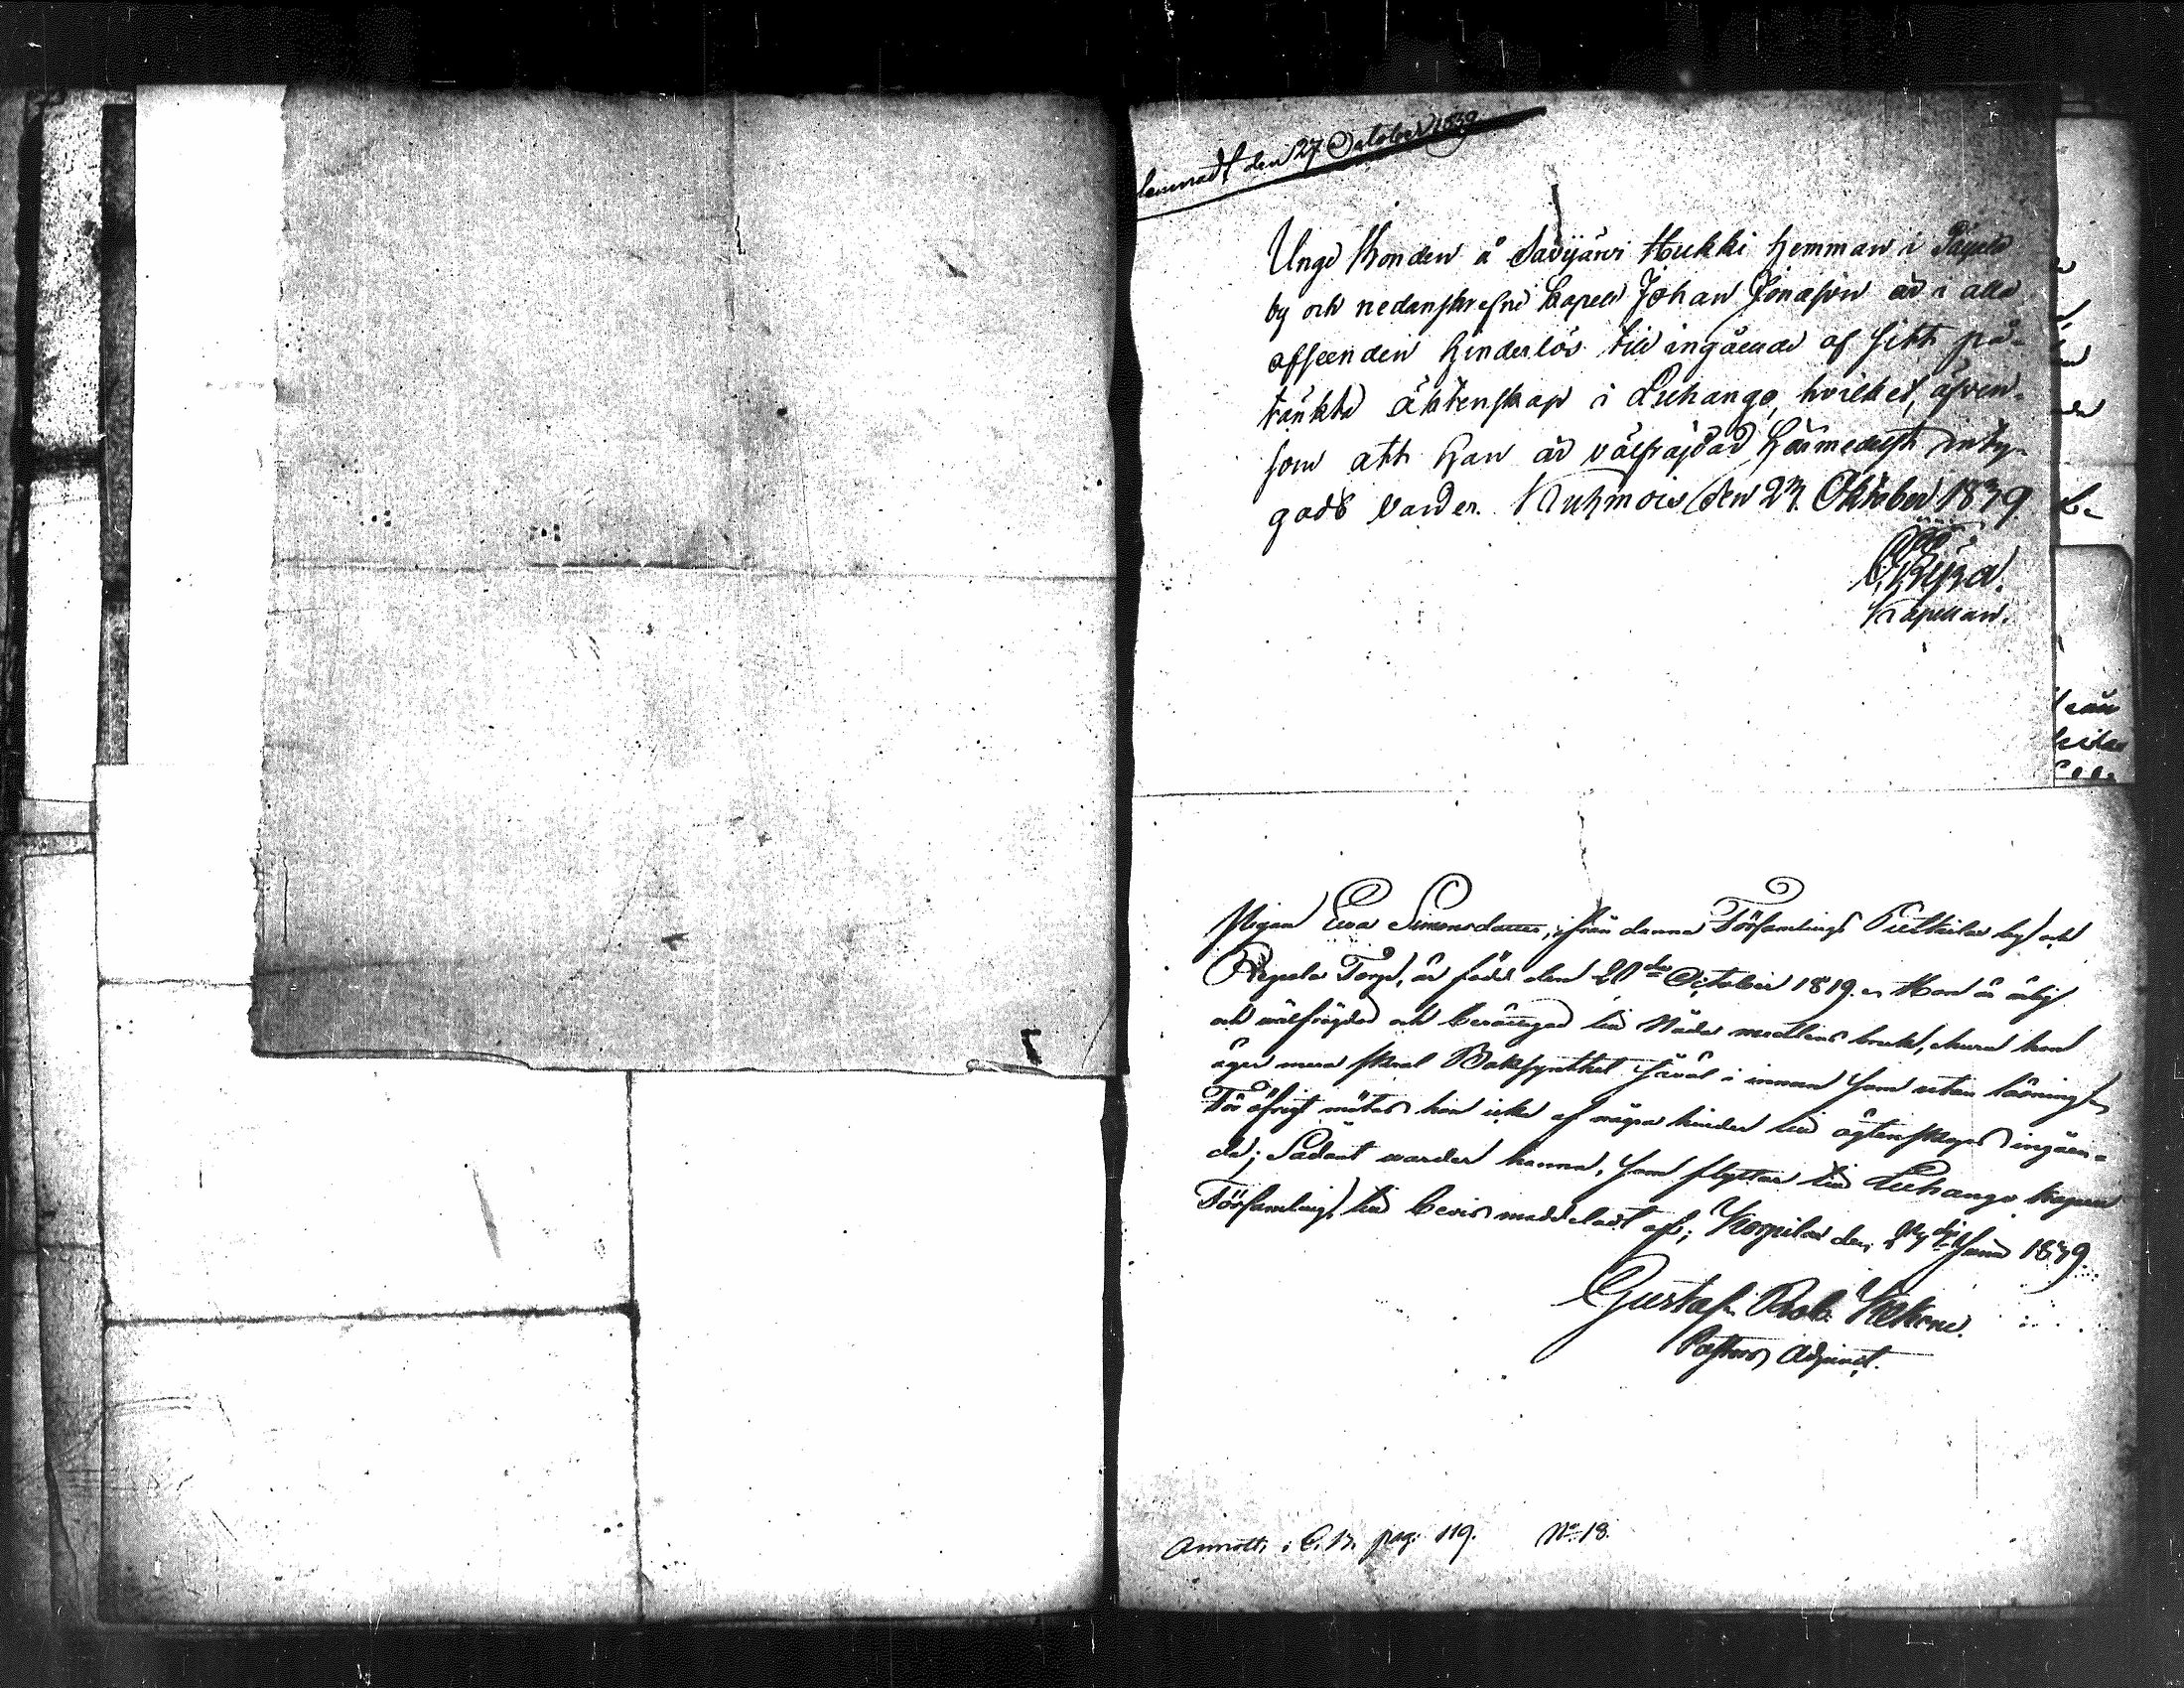 lemnadt den 27 October 1839.
Unge Bonden å Savijärvi Hukki hemman i Päjälä
by och nedanskrefne kapell Johan Jonasson är i alla
afseenden hinderlös till ingående af sitt på-
tänkta äktenskap i Luhango, hvilket, äfven-
som att han är välfräjdad härmedelst inty-
gadt varder. Kuhmois den 27. Oktober 1839.
Kapellan.
Pigan Eva Simonsdotter, ifrån denna Församlings Puttkila by och
Torp, är född den 20de October 1819. Hon är ärlig
och välfrägdad och berättigad till Nåde medlens bruk, ehuru hon
äger mera skral Bokfynthet såväl i innan som utan läsning
För öfrigt mötes hon icke af några hinder till ägtenskaps ingåen-
de; Sådant warder henne, som flyttar till Luhango kapell
Församling, till bevis meddeladt af; Korpilax den Junii 1839.
Gustaf
Pastors Adjunct.
Annott. i C.B. pag. 119. No 18.